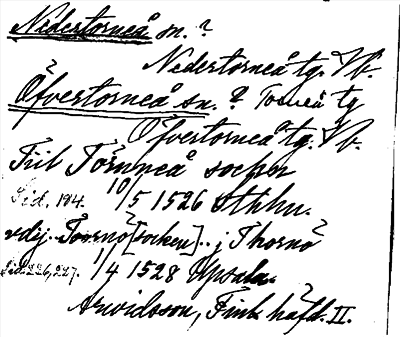 Nedertorneå sn.?
Nedertorneå tg. Vb.
Öfvertorneå sn.? Torneå tg
Öfvertorneå tg. Vb.
Till Tornneå socken
Sid. 184. 10/5 1526 Sthlm.
vdij. Toornö [socken].. j Thornö
Sid. 226, 227. 1/4 1528 Upsala.
Arwidsson, Finl. häfd. II.